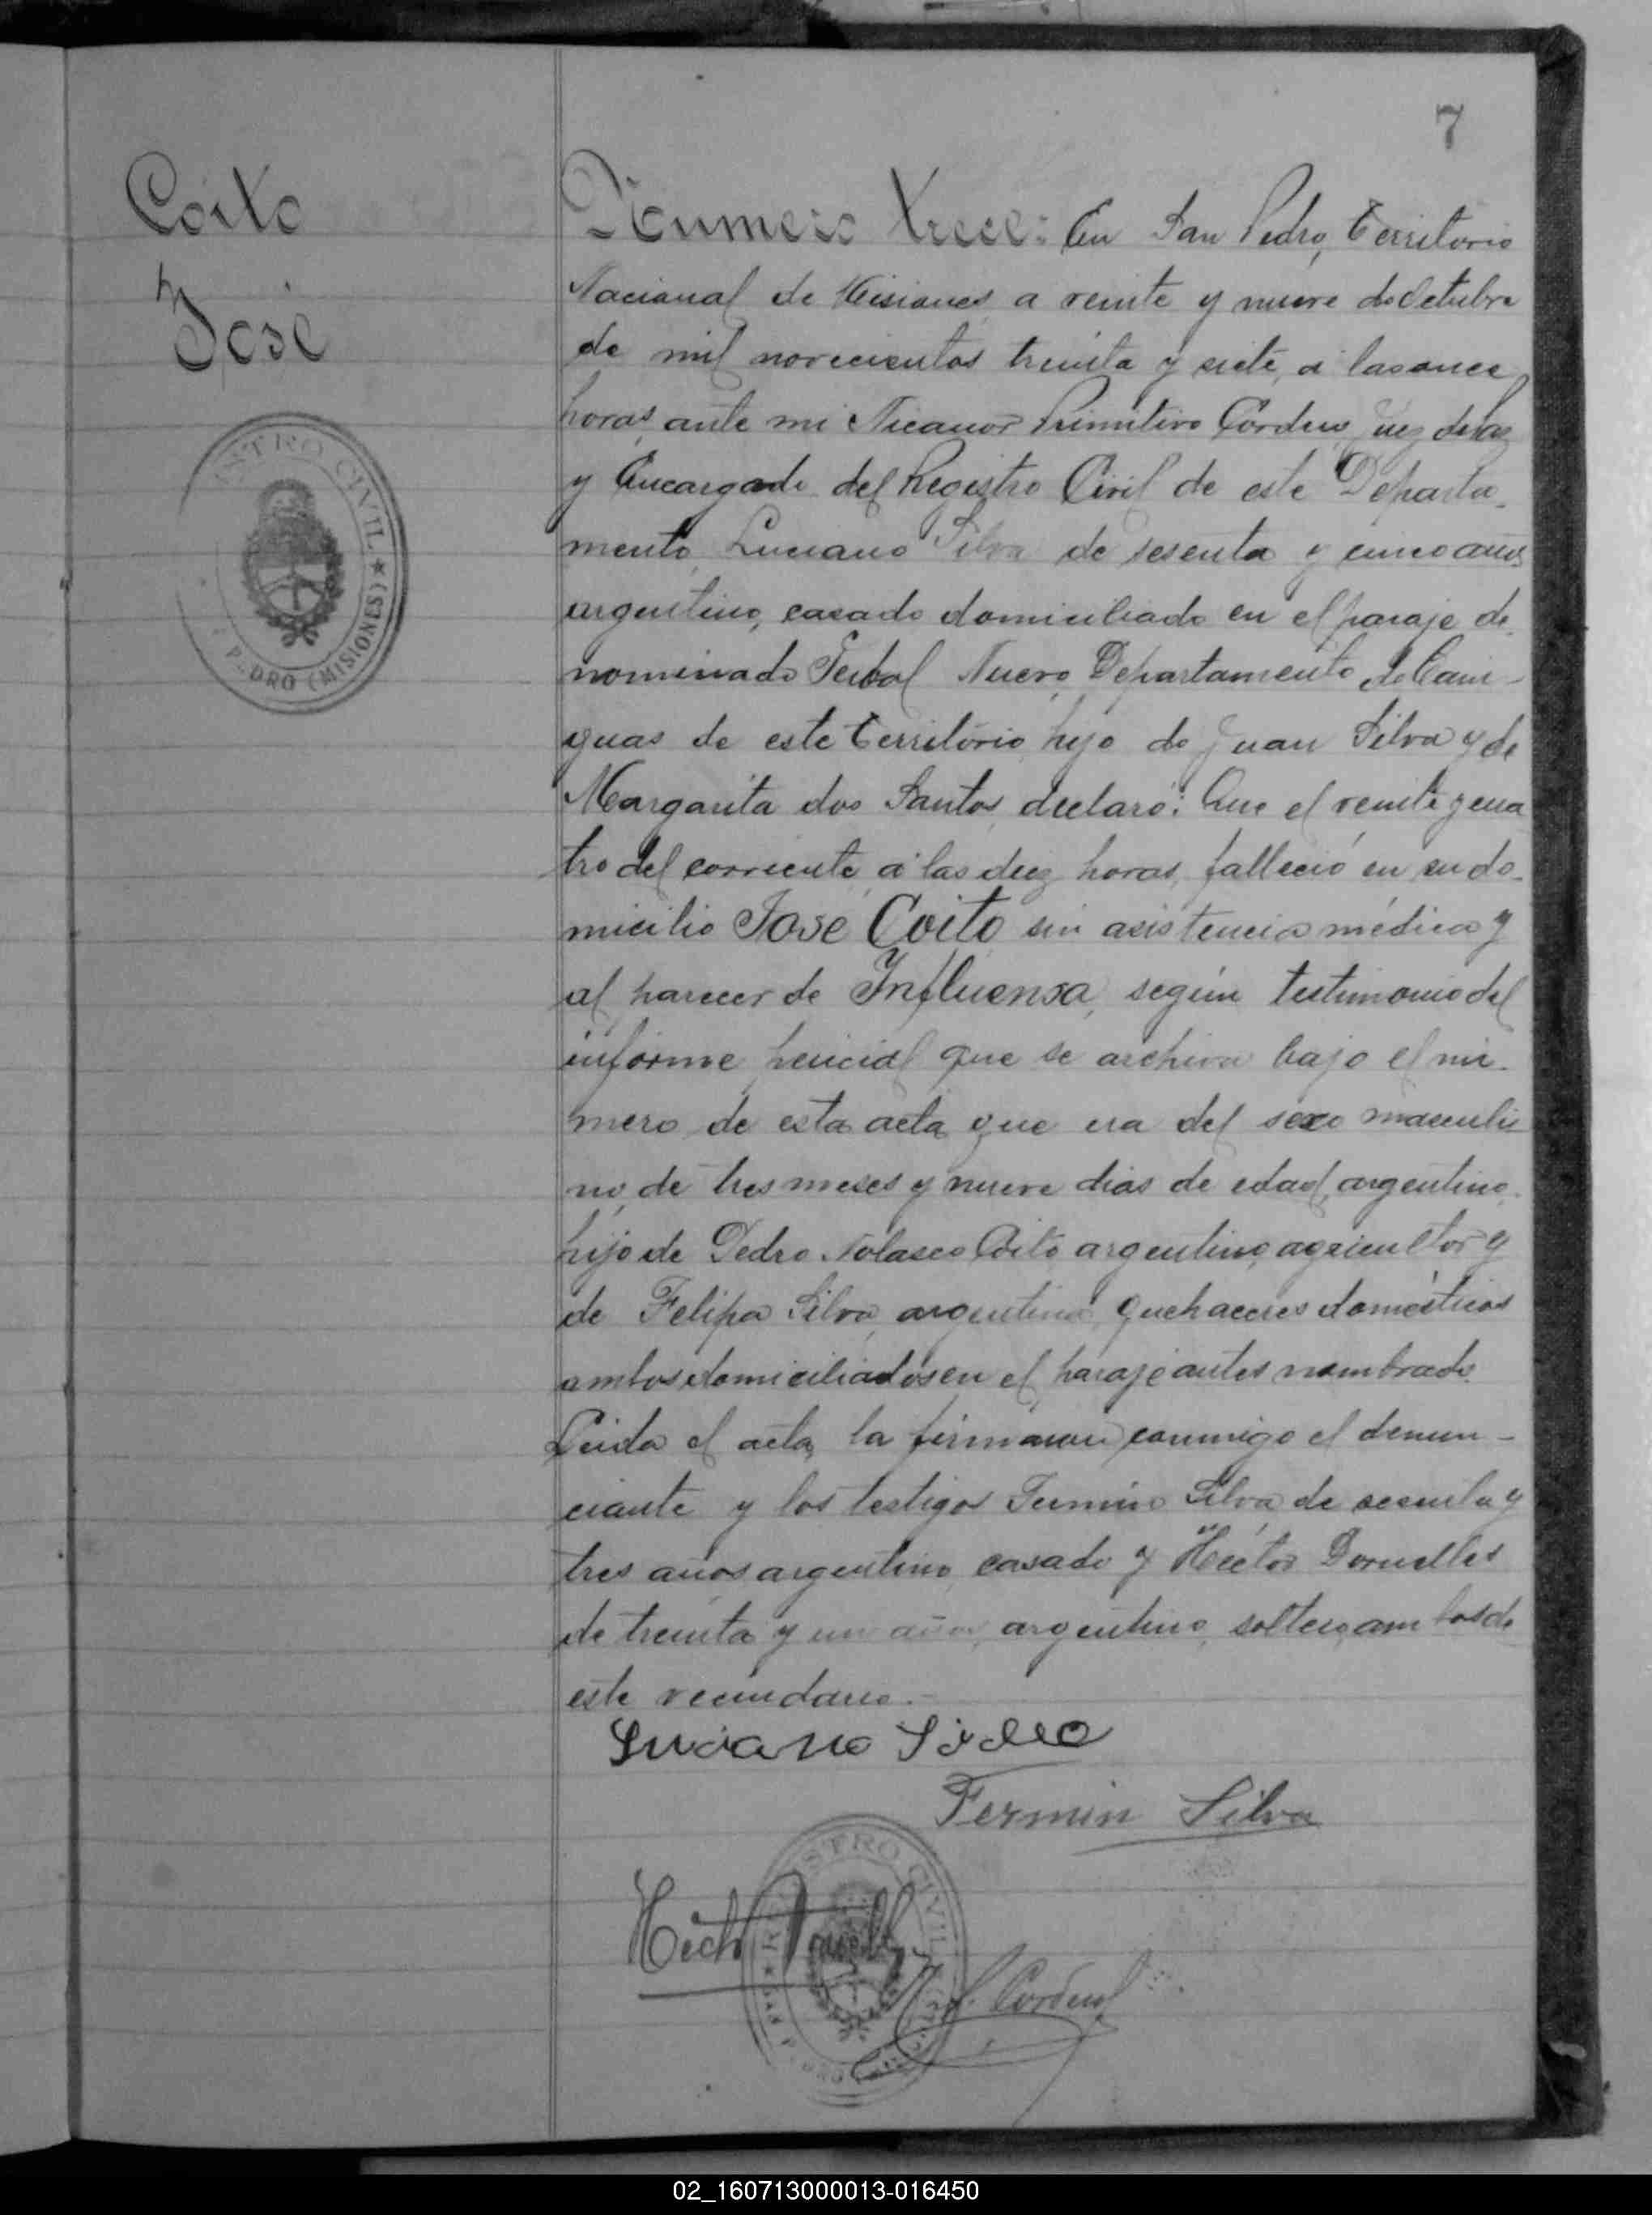 7
Coito
José
REGISTRO CIVIL ★ PEDRO (MISIONES)
Número trece: En San Pedro, Territorio
Nacional de Misiones a veinte y nueve de Octubre
de mil novecientos treinta y siete, a las once
horas, ante mi Nicanor Primitivo Cordero, Juez de Paz
y Encargado del Registro Civil de este Departa-
mento, Luciano Silva de sesenta y cinco años
argentino, casado domiciliado en el paraje de-
nominado Yerbal Nuevo, Departamento de Cain-
guas de este Territorio, hijo de Juan Silva y de
Margarita dos Santos, declaró: Que el veinte y cua
tro del corriente, a las diez horas, falleció en su do-
micilio José Coito sin asistencia médica y
al parecer de Influensa, según testimonio del
informe pericial que se archiva bajo el nú-
mero de esta acta, que era del sexo masculi-
no, de tres meses y nueve dias de edad, argentino,
hijo de Pedro Nolasco Coito argentino, agricultor y
de Felipa Silva, argentina, quehaceres domésticos
ambos domiciliados en el paraje antes nombrado.
Leida el acta, la firmaron conmigo el denun-
ciante y los testigos Fermin Silva de sesenta y
tres años argentino, casado y Héctor Dornelles
de treinta y un años, argentino, soltero, ambos de
este vecindario.-
Luciano Silva
Fermin Silva
Hector Dornelles
N. P. Cordero
02_160713000013-016450